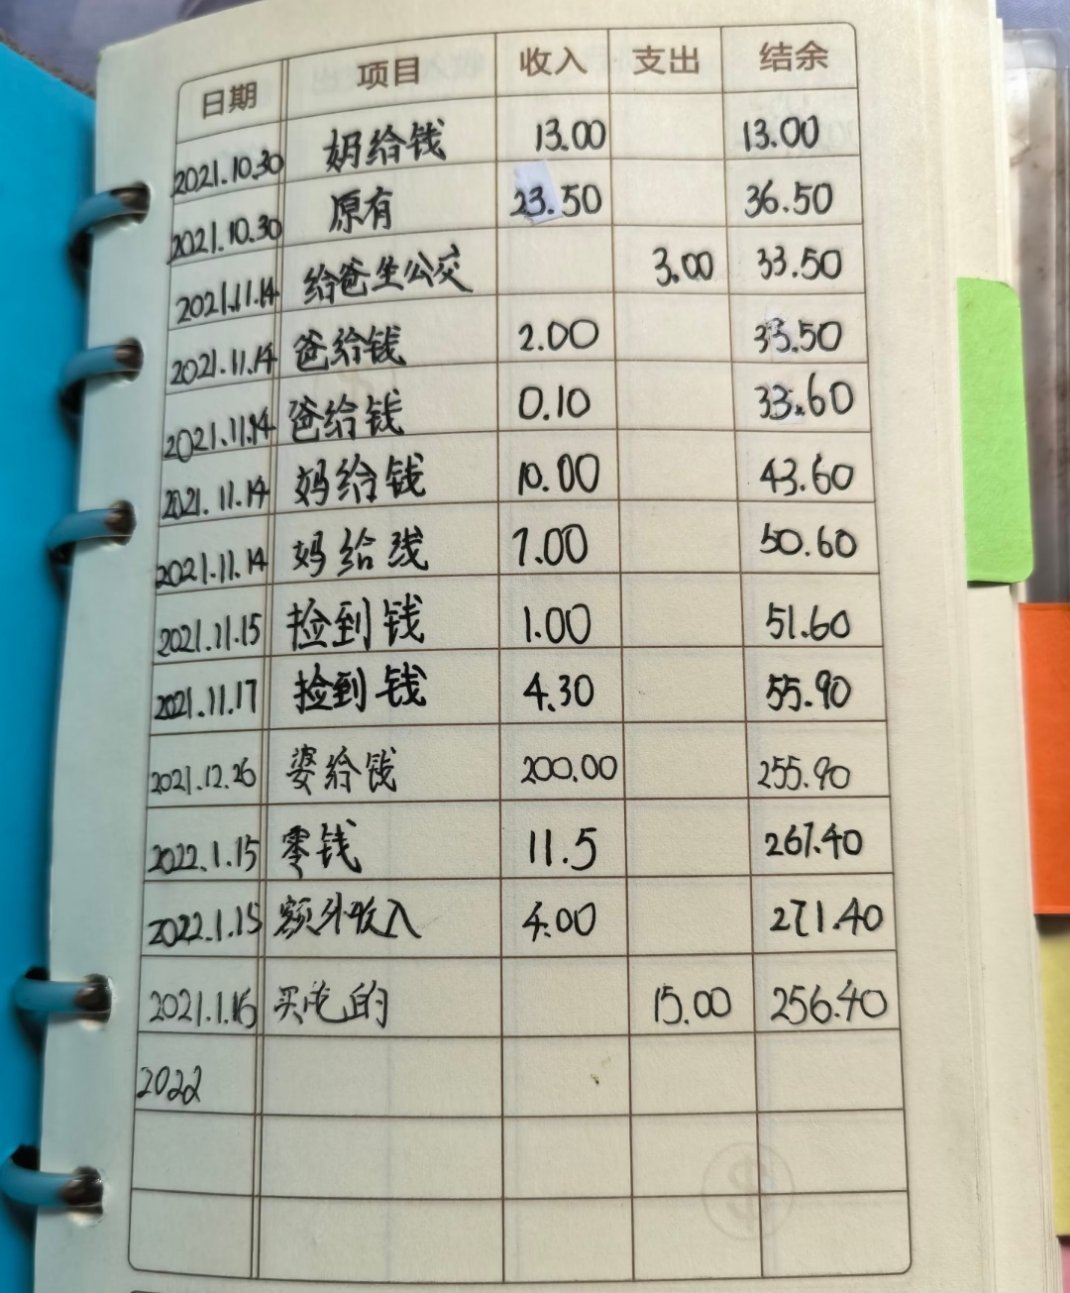 日期 项目 收入 支出 结余
2021.10.30 妈给钱 13.00 13.00
2021.10.30 原有 23.50 36.50
2021.11.14 给爸坐公交 3.00 33.50
2021.11.14 爸给钱 2.00 33.50
2021.11.14 爸给钱 0.10 33.60
2021.11.14 妈给钱 10.00 43.60
2021.11.14 妈给钱 7.00 50.60
2021.11.15 捡到钱 1.00 51.60
2021.11.17 捡到钱 4.30 55.90
2021.12.26 婆给钱 200.00 255.90
2022.1.15 零钱 11.5 267.40
2022.1.15 额外收入 4.00 271.40
2021.1.16 买吃的 15.00 256.40
2022